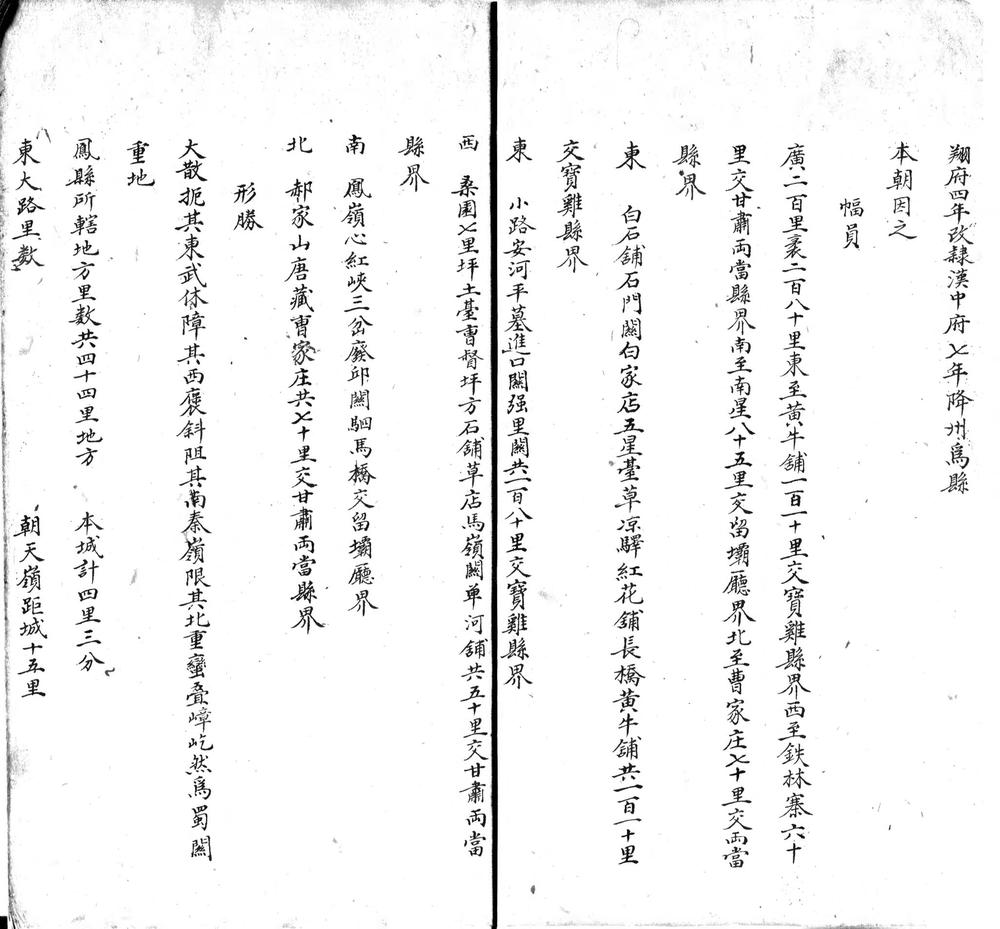 翔府四年改隸漢中府七年降州爲縣
本朝因之
幅員
廣二百里袤二百八十里東至黃牛舖一百一十里交寶雞縣界西至鉄林寨六十
里交甘肅両當縣界南至南星八十五里交留壩廳界北至曹家庄七十里交両當
縣界
東　白石舖石門關白家店五星臺草凉驛紅花舖長橋黃牛舖共一百一十里
交寶雞縣界
東　小路安河平墓進口關强里關共一百八十里交寶雞縣界
西　桑園七里坪土臺曹督坪方石舖草店馬嶺關单河舖共五十里交甘肅両當
縣界
南　鳳嶺心紅峽三岔廢邱關駟馬橋交留壩廳界
北　郝家山唐藏曹家庄共七十里交甘肅両當縣界
形勝
大散扼其東武休障其西褒斜阻其南秦嶺限其北重巒疊嶂屹然爲蜀關
重地
鳳縣所轄地方里數共四十四里地方　本城計四里三分
東大路里數　朝天嶺距城十五里